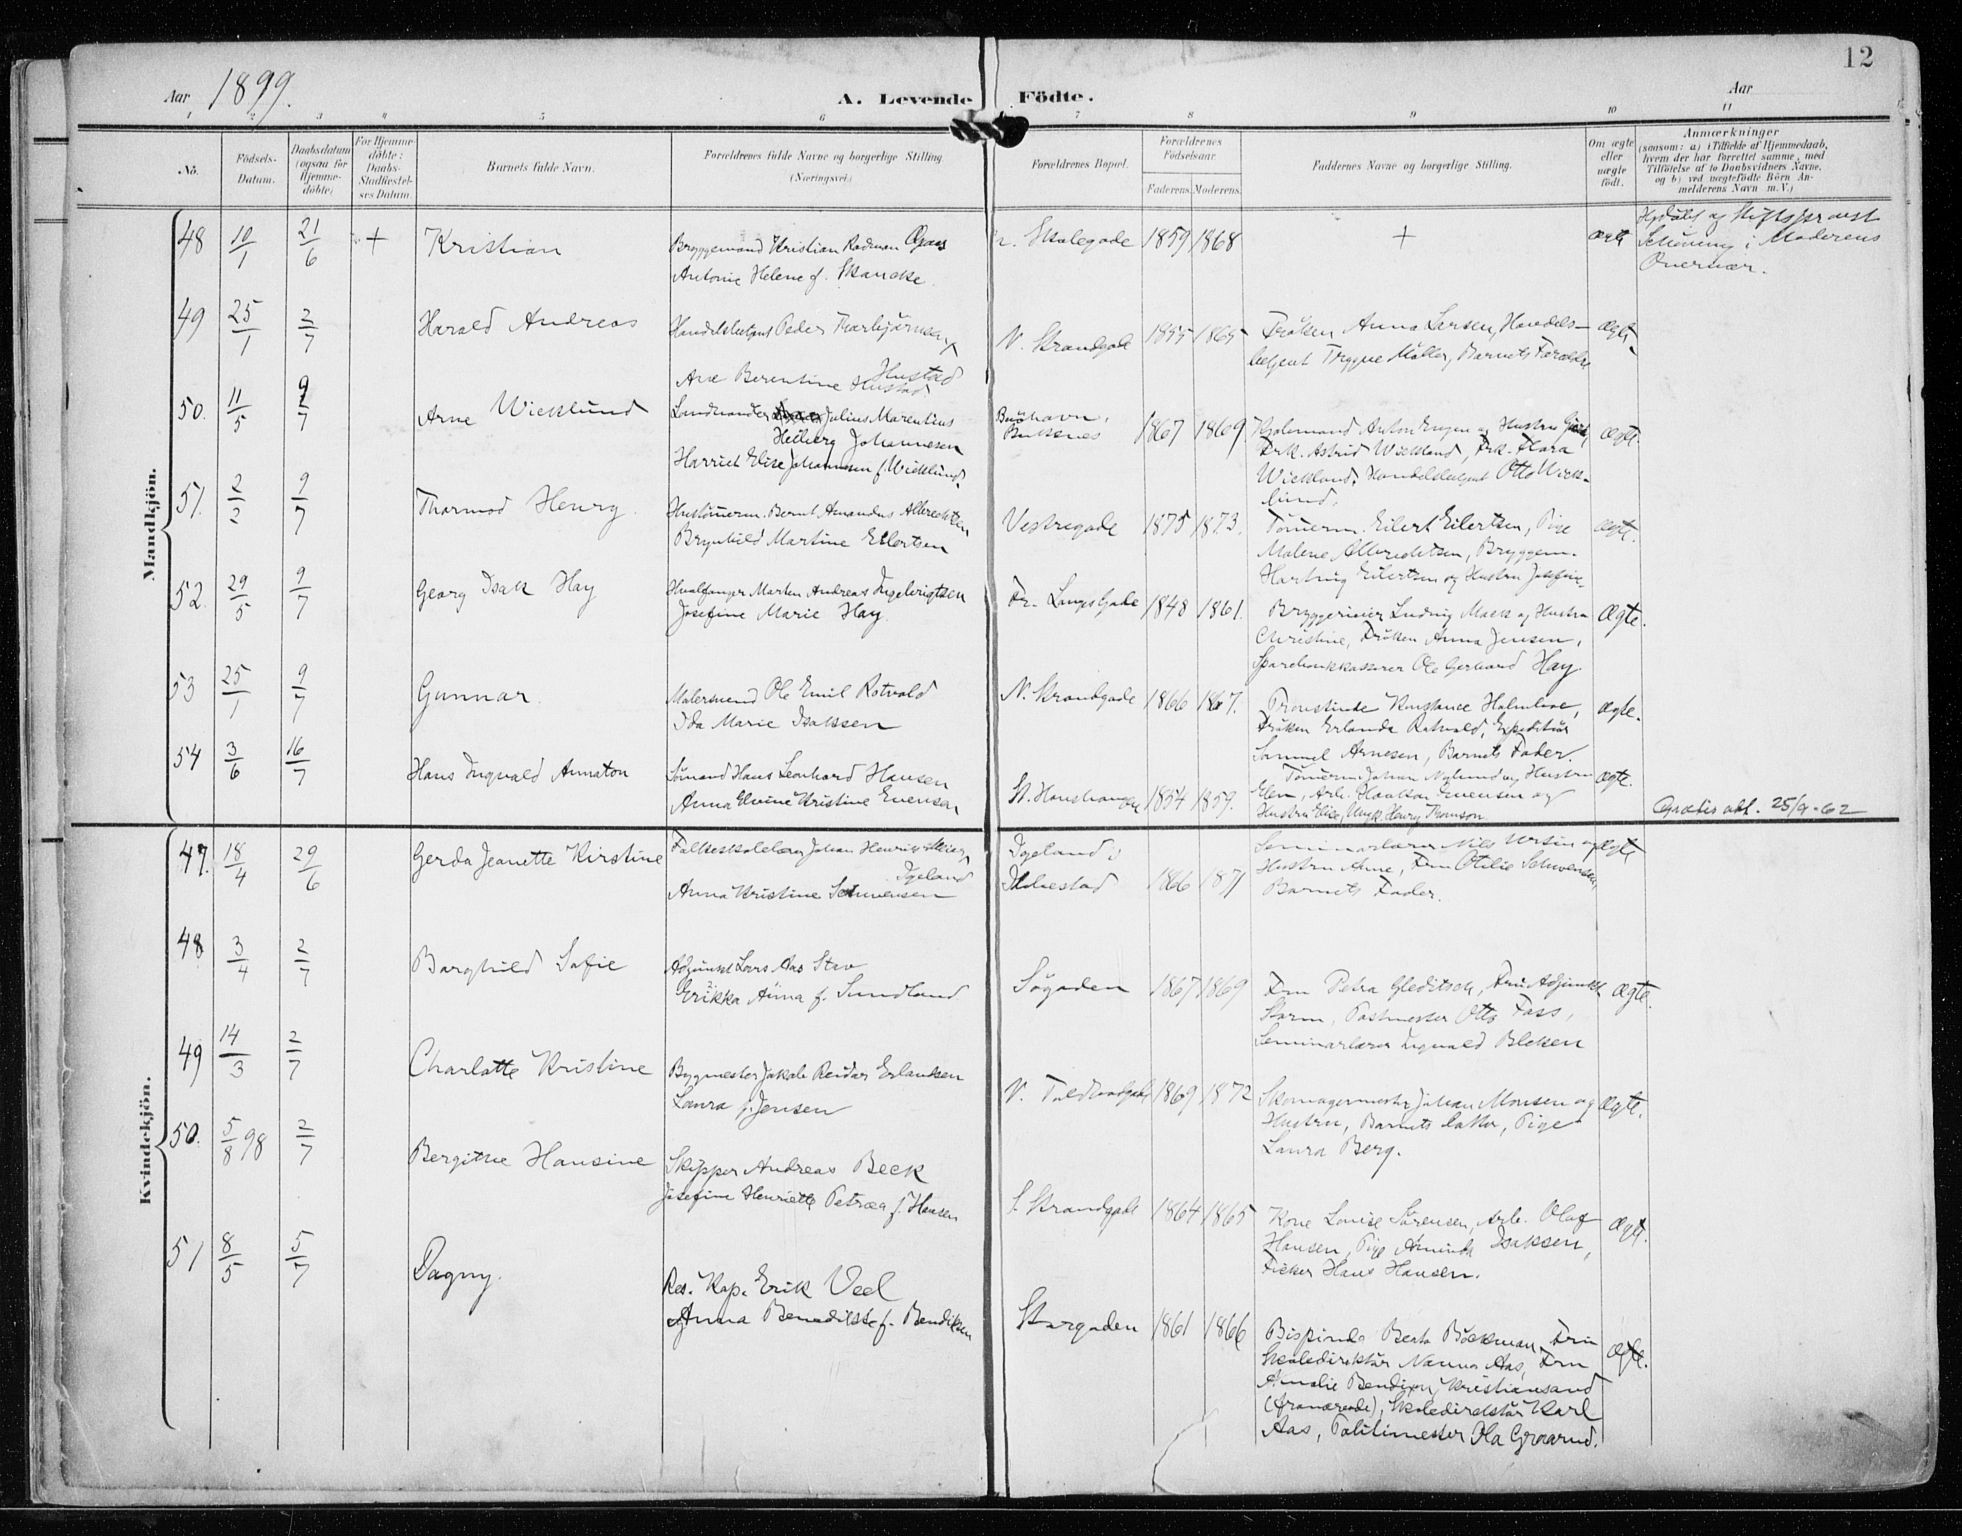 12
Aar 1899.
A. Levende Födte.
Aar
1 2 3 4 5 6 7 8 9 10 11
No.
Födsels-Datum.
Daabsdatum (ogsaa for Hjemmedöbte)
For Hjemmedöbte: Daabs-Stadfæstelses Datum.
Barnets fulde Navn.
Forældrenes fulde Navne og borgerlige Stilling
(Næringsvei.)
Forældrenes Bopæl.
Forældrenes Födselsaar.
Faderens. Moderens.
Faddernes Navne og borgerlige Stilling.
Om ægte eller uægte födt.
Anmærkninger
(saasom: a) i Tilfælde af Hjemmedaab,
hvem der har forrettet samme, med
Tilföielse af to Daabsvidners Navne,
og b) ved uægtefödte Börn An-
melderens Navn m.V.)
Mandkjön.
48 10/1 21/6 + Kristian
Bryggemand Kristian Radman
Antonie Helene f. Skancke.
Skolegade 1859 1868 + ægte
Hjdöbt af Stiftsprovst
i Moderens
Overvær.
49 25/1 2/7 Harald Andreas
Handelsbetjent Peder Thorbjörnsen
Berentine Hustad
N. Strandgade 1855 1865
Fröken Anna Larsen, Handels-
betjent Trygve Möller, Barnets Forældre
ægte.
50. 11/5 9/7 Arne Wicklund
Landhandler Julius Marentius
Heiberg Johannesen
Harriet Elise Johannesen f. Wicklund.
Buksnes 1867 1869
Anton Engen og Hustru
Frk. Astrid Wicklund, Frk. Flora
Wicklund, Handelsbetjent Otto Wick-
lund.
ægte.
51. 2/2 9/7 Thormod Henry.
Hustömerm. Bernt Amandus Albrechtsen
Brynhild Martine Eilertsen
Vestregade 1875 1873.
Tömerm. Eilert Eilertsen, Pige
Malene Albrechtsen, Bryggem.
Hartvig Eilertsen og Hustru Josefine
ægte.
52. 29/5 9/7 Georg Isak Hay
Hvalfanger Morten Andreas Ingebrigtsen
Josefine Marie Hay.
Fr. Langes Gade 1848 1861.
Bryggerieier Ludvig Mack og Hustru
Christine, Fröken Anna Jensen,
Sparebankkasserer Ole Gerhard Hay.
Ægte.
53 25/1 9/7 Gunnar.
Malersvend Ole Emil Rotvold
Ida Marie Isaksen
N. Strandgade 1866 1867.
Provstinde Konstance Holmboe,
Fröken Erlanda Rotvold, Expeditör
Samuel Arnesen, Barnets Fader.
Ægte.
54 3/6 16/7 Hans Ingvald Annaton
Sömand Hans Leonhard Hansen
Anna Elvine Kristine Evensen
St. Hanshaugen 1854 1859.
Tömerm. Johan Nylund og Hustru
Elen, Arb. Haakon Evensen og
Hustru Elise, Ungk. Henry Thomsen
Ægte.
Gratis att. 25/9-62
Kvindekjön.
47. 18/4 29/6 Gerda Jeanette Kirstine
Folkeskolelærer Johan Henrik
Igeland
Anna Kristine Schwensen
Igeland i
Ibbestad 1866 1871
Seminarlærer Nils Ursin og
Hustru Anne, Fru Otilie Schwensen,
Barnets Fader.
Ægte
48 3/4 2/7 Borghild Sofie
Adjunkt Lars Aas Stav
Erikka Anna f. Sundland
Sögaden 1867 1869
Fru Petra Gleditsch, Fru Adjunkt
Storm, Postmester Otto Foss,
Seminarlærer Ingvald Bleken
Ægte.
49 14/3 2/7 Charlotte Kristine
Bygmester Jakob Reidar Erlandsen
Laura f. Jensen
N. Toldbodgade 1869 1872
Skomagermester Johan Monsen og
Hustru, Barnets Fader, Pige
Laura Berg.
Ægte.
50. 5/8 98 2/7 Bergithe Hansine
Skipper Andreas Beck
Josefine Henriette Petræa f. Hansen
S. Strandgade 1864 1865
Kone Louise Sörensen, Arb. Olaf
Hansen, Pige Isaksen,
Fisker Hans Hansen.
Ægte.
51 8/5 5/7 Dagny.
Res. Kap. Erik Veel
Anna Benedikte f. Bendixen
Storgaden 1861 1866
Bispinde Berta Böckman, Fru
Skoledirektör Nanna Aas, Fru
Amalie Bendixen, Kristiansand
(fraværende), Skoledirektör Karl
Aas, Politimester Ola Graarud.
Ægte.